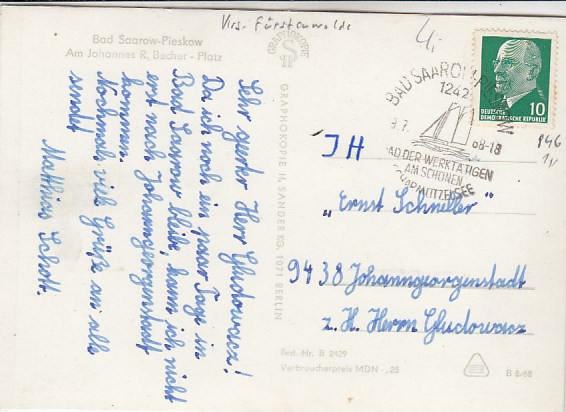 Krs. Fürstenwalde
Bad Saarow-Pieskow
Am Johannes R. Becher - Platz
Sehr geehrter Herr Gludowacz!
Da ich noch ein paar Tage in
Bad Saarow bleibe, kann ich nicht
erst nach Johanngeorgenstadt
kommen.
Nochmals viel Grüße an alle
sendet
Matthias Schott.
GRAPHOKOPIE
GRAPHOKOPIE H. SANDER KG, 1071 BERLIN
BAD SAAROW-PIESKOW
1242
68-18
BAD DER WERKTÄTIGEN
AM SCHÖNEN
SCHARMÜTZELSEE
10
DEUTSCHE
DEMOKRATISCHE REPUBLIK
JH
„Ernst Schneller"
9438 Johanngeorgenstadt
z. H. Herrn Gludowacz
Best.-Nr. B 2429
Verbraucherpreis MDN -,25
B 6/68